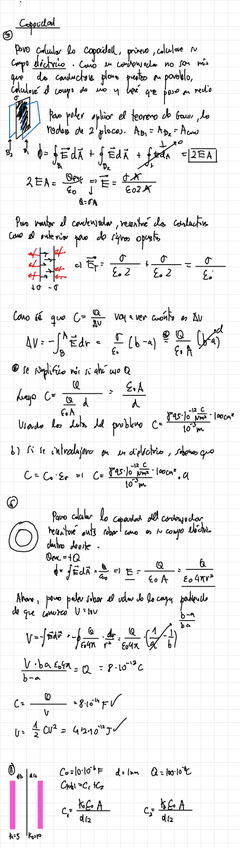 Capacidad
⑤ Para calcular la capacidad, primero, calculare su
campo eléctrico. Como un condensador no son más
que dos conductores planos puestos en paralelo,
calcularé el campo de uno y veré que pasa en medio
Para poder aplicar el teorema de Gauss, lo
rodeo de 2 placas. A_D1 = A_D2 = A_cono
ϕ = ∮ E dA + ∮ E dA + ∮ E dA = 2EA
2EA = Qenc/ε0 ⇒ E = σA/ε02A
Q=σA
Para montar el condensador, necesitaré dos conductores
como el anterior pero de signos opuestos
+σ -σ
⇒ E_T = σ/ε0 2 + σ/ε0 2 = σ/ε0
Como sé que C = Q/ΔV voy a ver cuánto es ΔV
ΔV = -∫ E dr = σ/ε0 (b-a) = Q/ε0A (b-a) d
se simplifica más si añado Q
Luego C = Q/(Q/ε0A d) = ε0A/d
Usando los datos del problema C = 8'85·10^-12 C/Nm² · 100cm²/10^-3 m
b) Si se introdujera en un dieléctrico, sabemos que
C = C0·εr ⇒ C = 8'85·10^-12 C/Nm² · 100cm²/10^-3 m · 9
⑥ Para calcular la capacidad del condensador
necesitaré saber como es su campo eléctrico
dentro de este.
Qenc = +Q
ϕ = ∮ E dA = Q/ε0 ⇒ E = Q/ε0A = Q/ε04πr²
Ahora, para poder saber el valor de la carga partiendo
de que conozco V = 10V
b-a/ba
V = -∫ E dr = -∫ Q/ε04π · dr/r² = Q/ε04π (1/a - 1/b)
V·ba ε04π/b-a = Q = 8·10^-12 C
C = Q/V = 8·10^-12 F ✓
U = 1/2 CV² = 4'2·10^-10 J ✓
⑧ d/2 d/2
C0 = 10·10^-6 F d = 1mm Q = 100·10^-6 C
C1 = k1ε0 A/d/2 C2 = k2ε0 A/d/2